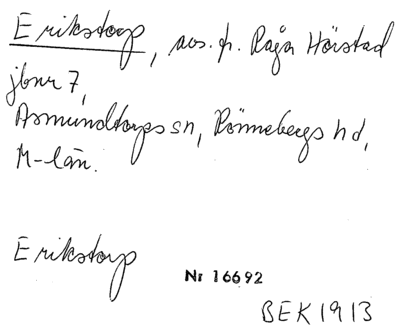 Erikstorp, avs. fr. Råga Hörstad
jbnr 7,
Asmundtorps sn, Rönnebergs hd,
M-län.
Erikstorp
Nr 16692
BEK 1913